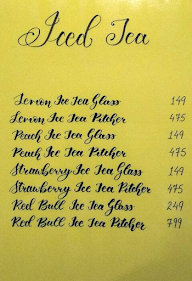 Iced Tea
Lemon Ice Tea Glass 149
Lemon Ice Tea Pitcher 475
Peach Ice Tea Glass 149
Peach Ice Tea Pitcher 475
Strawberry Ice Tea Glass 149
Strawberry Ice Tea Pitcher 475
Red Bull Ice Tea Glass 249
Red Bull Ice Tea Pitcher 799